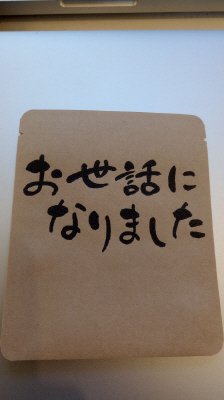 お世話に
なりました